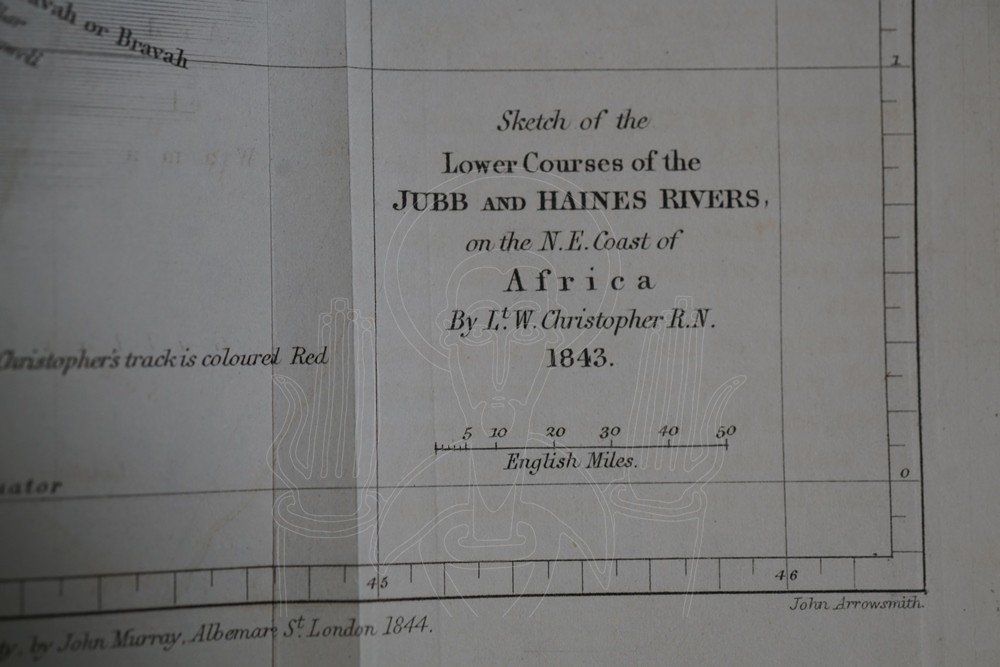 avah or Bravah
1
Sketch of the
Lower Courses of the
JUBB AND HAINES RIVERS,
on the N.E. Coast of
Africa
By Lt. W. Christopher R.N.
1843.
Christopher's track is coloured Red
5 10 20 30 40 50
English Miles.
0
uator
45 46
John Arrowsmith.
ty, by John Murray, Albemarle St. London 1844.